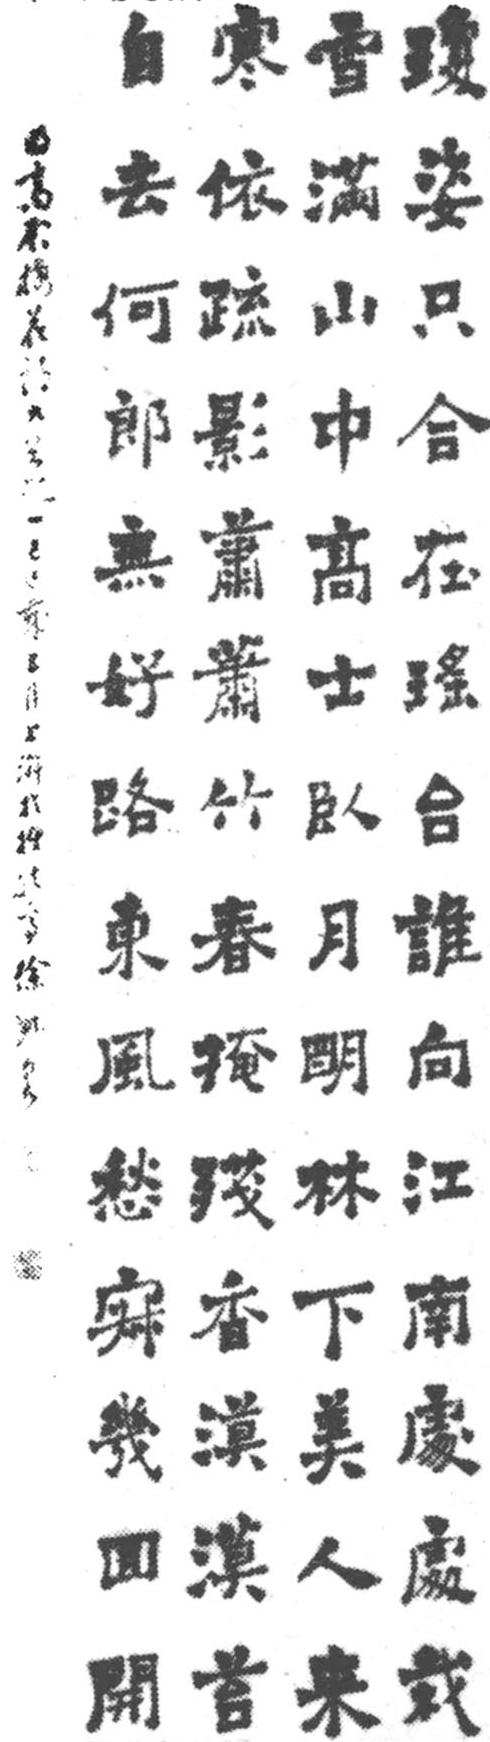 瓊姿只合在瑤台誰向江南處處栽
雪滿山中高士臥月明林下美人来
寒依疏影蕭蕭竹春掩殘香漠漠苔
自去何郎無好路東風愁寂幾回開